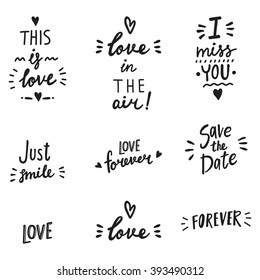 THIS
is
love
love
in
THE
air!
I
miss
YOU
Just
smile
LOVE
forever
Save
the
Date
LOVE
love
FOREVER
shutterstock
IMAGE ID: 393490312
www.shutterstock.com